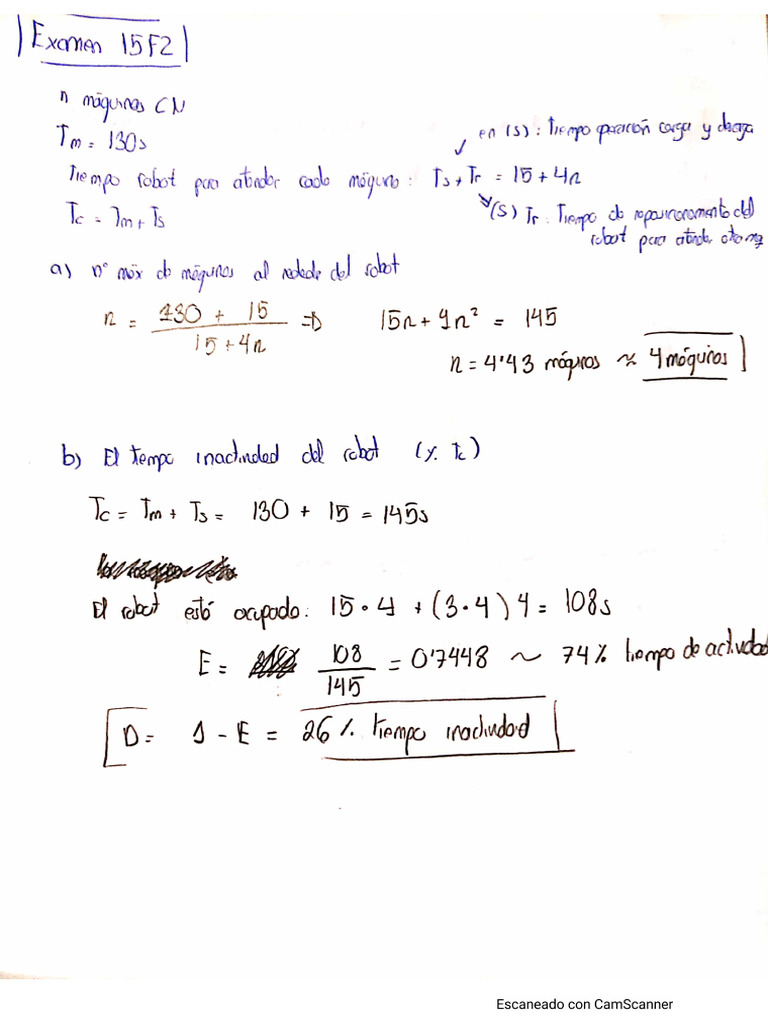 Examen 15F2
n máquinas CN
Tm = 130s
en (s): Tiempo posición carga y descarga
Tiempo robot para atender cada máquina: Ts + Tr = 15 + 4n
Tc = Tm + Ts
(s) Tr: Tiempo de reposicionamiento del
robot para atender otra maq
a) nº máx de máquinas al rededor del robot
n = 130 + 15 / 15 + 4n ⇒ 15n + 4n² = 145
n = 4'43 máquinas ≈ 4 máquinas
b) El tiempo inactividad del robot (y. Tc)
Tc = Tm + Ts = 130 + 15 = 145s
El robot está ocupado: 15 · 4 + (3·4) 4 = 108s
E = 108 / 145 = 0'7448 ~ 74% tiempo de actividad
D = 1 - E = 26% tiempo inactividad
Escaneado con CamScanner